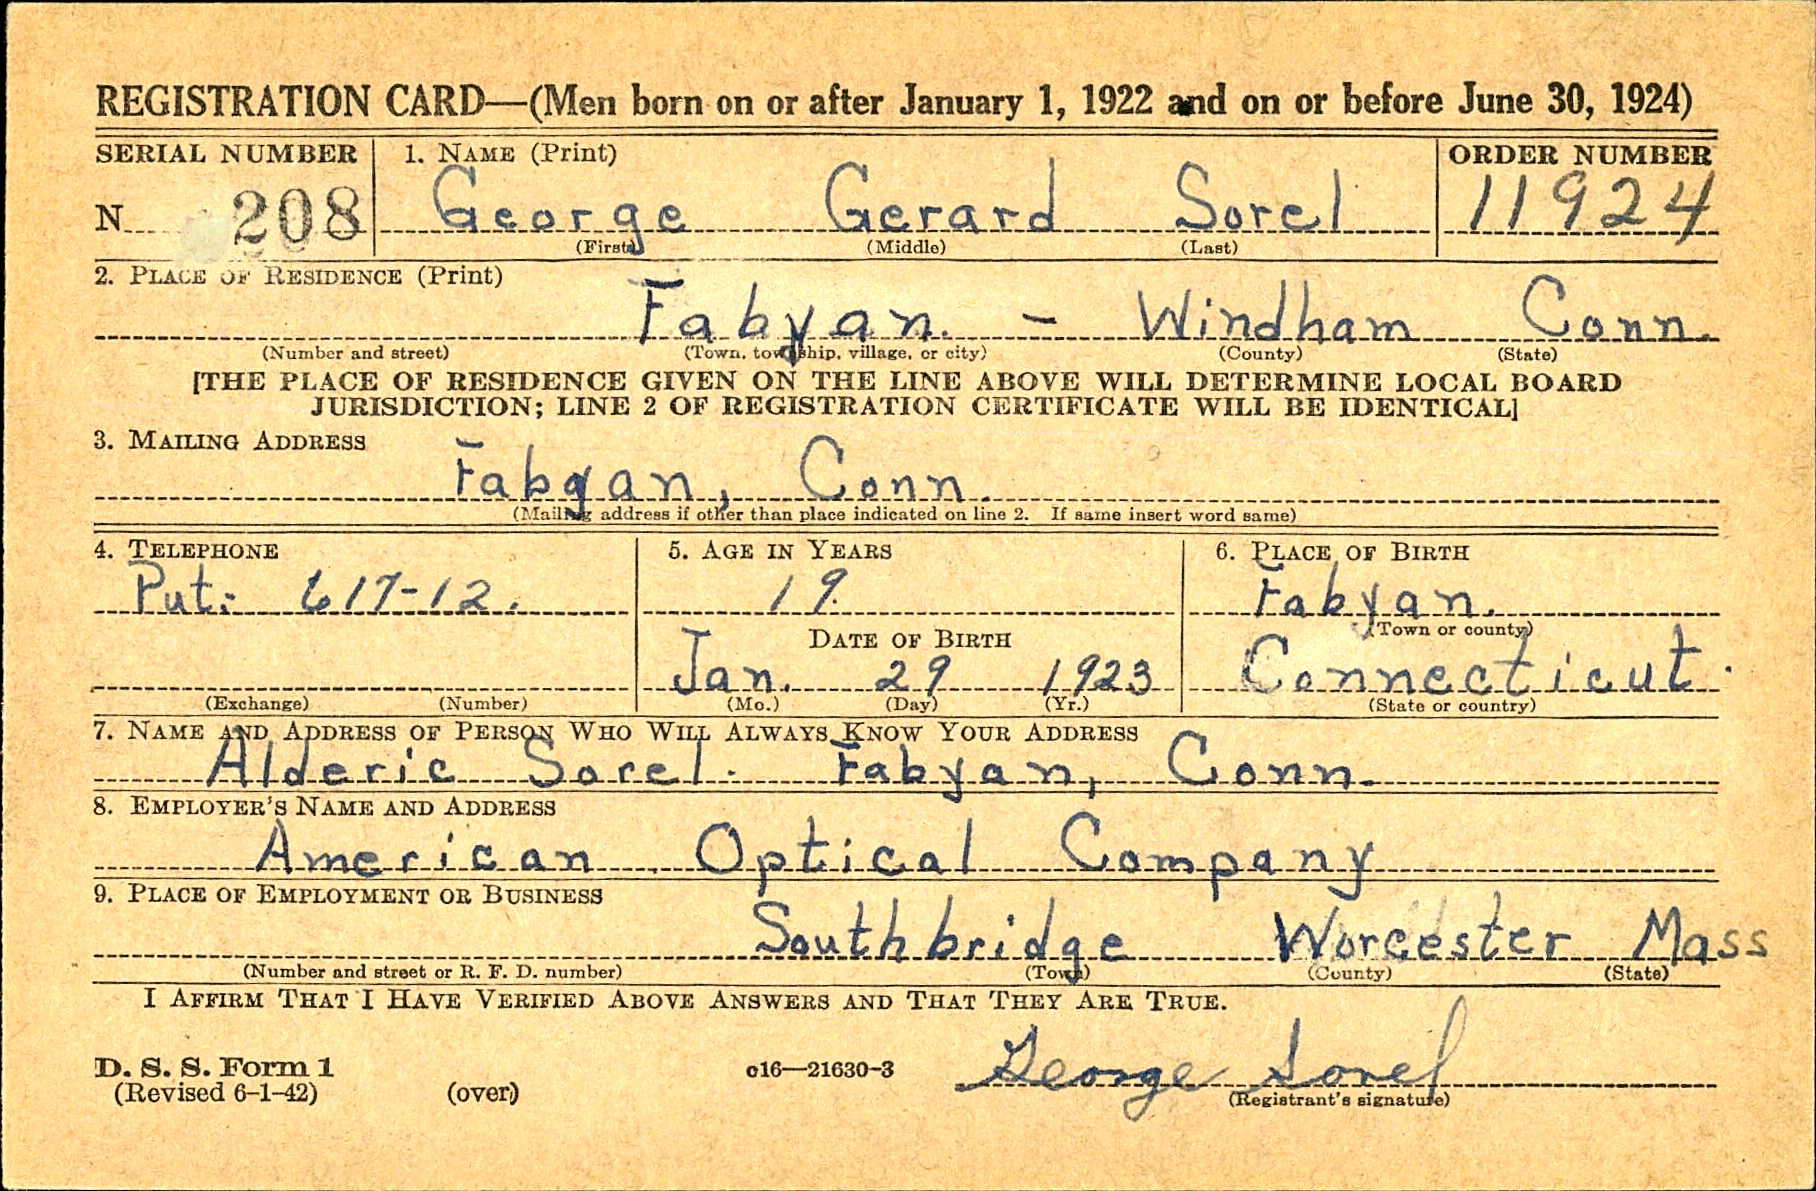 REGISTRATION CARD—(Men born on or after January 1, 1922 and on or before June 30, 1924)
SERIAL NUMBER 1. NAME (Print) ORDER NUMBER
N 208 George Gerard Sorel 11924
(First) (Middle) (Last)
2. PLACE OF RESIDENCE (Print)
Fabyan. - Windham Conn.
(Number and street) (Town, township, village, or city) (County) (State)
[THE PLACE OF RESIDENCE GIVEN ON THE LINE ABOVE WILL DETERMINE LOCAL BOARD
JURISDICTION; LINE 2 OF REGISTRATION CERTIFICATE WILL BE IDENTICAL]
3. MAILING ADDRESS
Fabyan, Conn.
(Mailing address if other than place indicated on line 2. If same insert word same)
4. TELEPHONE 5. AGE IN YEARS 6. PLACE OF BIRTH
Put: 617-12. 19. Fabyan.
(Town or county)
DATE OF BIRTH
Jan. 29 1923 Connecticut.
(Exchange) (Number) (Mo.) (Day) (Yr.) (State or country)
7. NAME AND ADDRESS OF PERSON WHO WILL ALWAYS KNOW YOUR ADDRESS
Alderic Sorel. Fabyan, Conn.
8. EMPLOYER'S NAME AND ADDRESS
American Optical Company
9. PLACE OF EMPLOYMENT OR BUSINESS
Southbridge Worcester Mass
(Number and street or R. F. D. number) (Town) (County) (State)
I AFFIRM THAT I HAVE VERIFIED ABOVE ANSWERS AND THAT THEY ARE TRUE.
D. S. S. Form 1
(Revised 6-1-42) (over) c16—21630-3 George Sorel
(Registrant's signature)